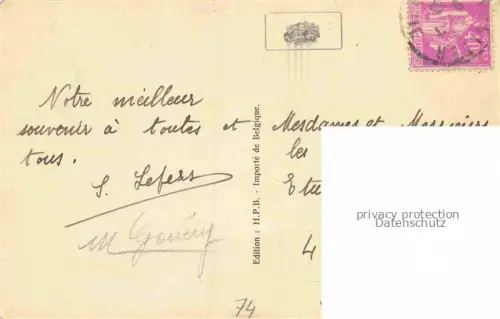 Notre meilleur
souvenir à toutes et
tous.
S. Lefers
M Gouéry
74
Edition : H.P.B. - Importé de Belgique.
Mesdames et Messieurs
les
Etu
4
privacy protection
Datenschutz